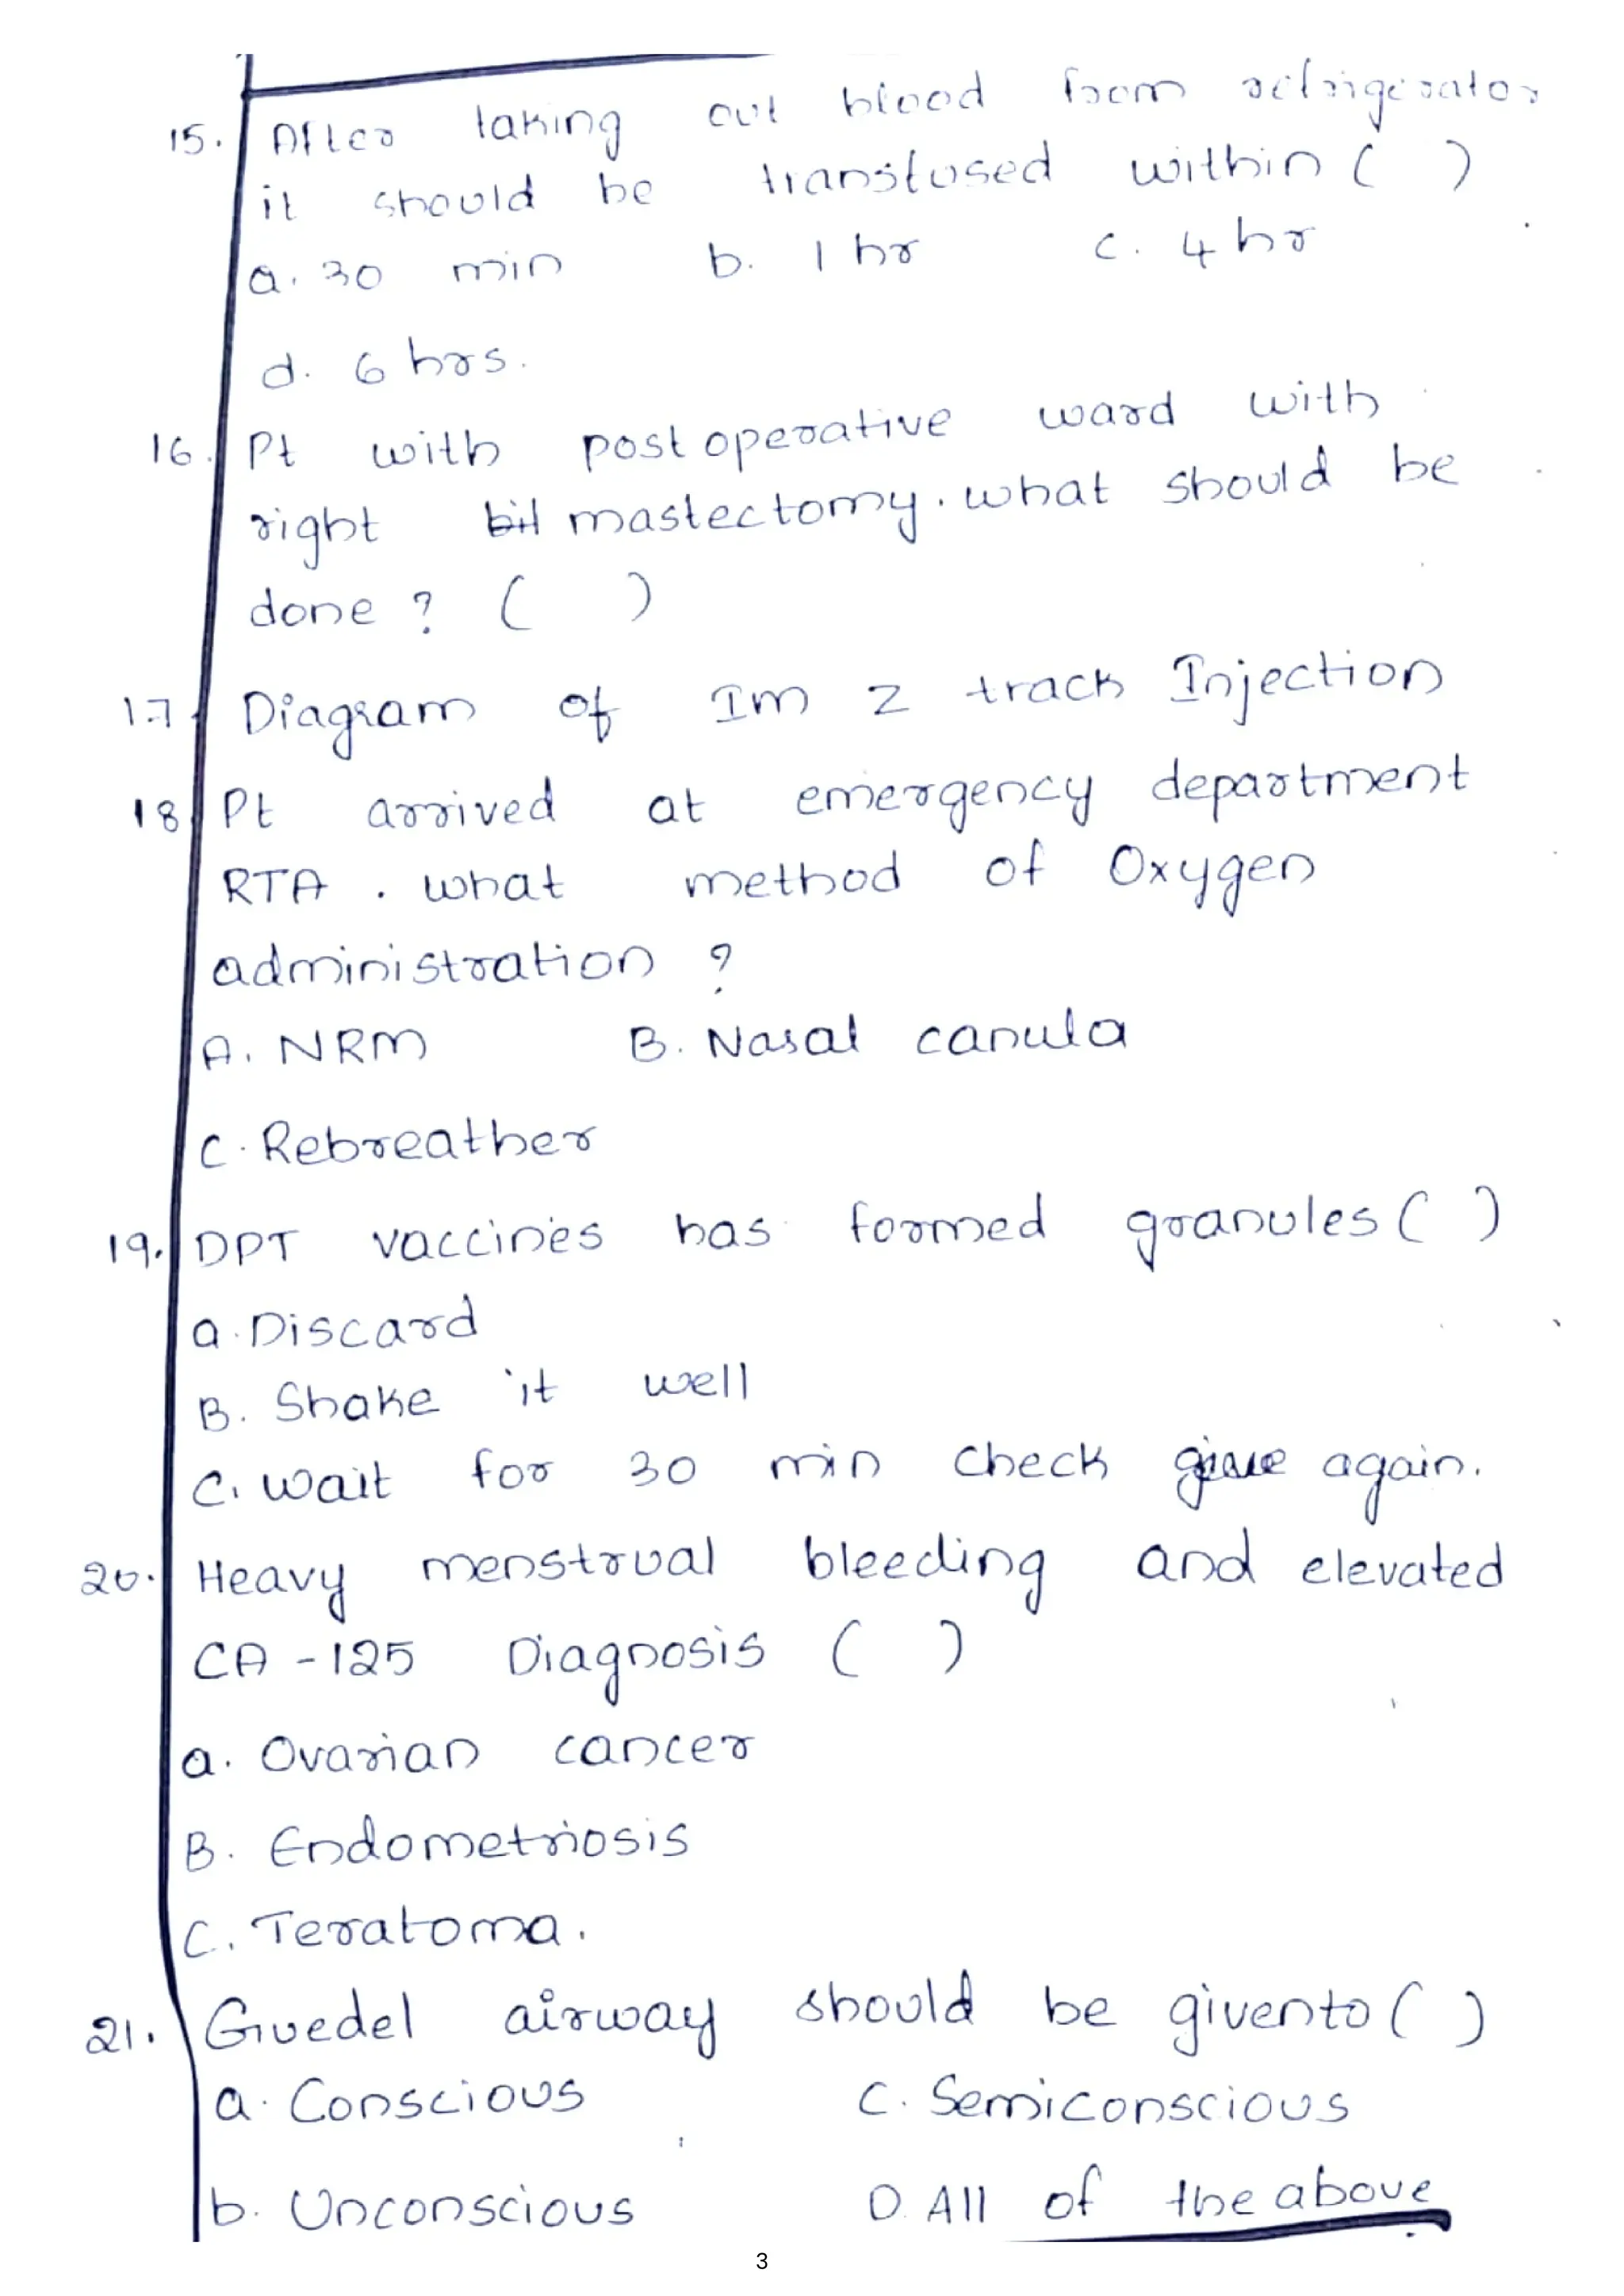 15. After taking out blood from refrigerator
it should be transfused within ( )
a. 30 min b. 1 hr c. 4 hr
d. 6 hrs.
16. Pt with post operative ward with
right bil mastectomy. what should be
done ? ( )
17. Diagram of Im Z track Injection
18 Pt arrived at emergency department
RTA . what method of Oxygen
administration ?
A. NRM B. Nasal canula
C. Rebreather
19. DPT vaccines has formed granules ( )
a. Discard
B. Shake it well
C. wait for 30 min check give again.
20. Heavy menstrual bleeding and elevated
CA - 125 Diagnosis ( )
a. Ovarian cancer
B. Endometriosis
C. Teratoma.
21. Guedel airway should be given to ( )
a. Conscious C. Semiconscious
b. Unconscious D. All of the above
3